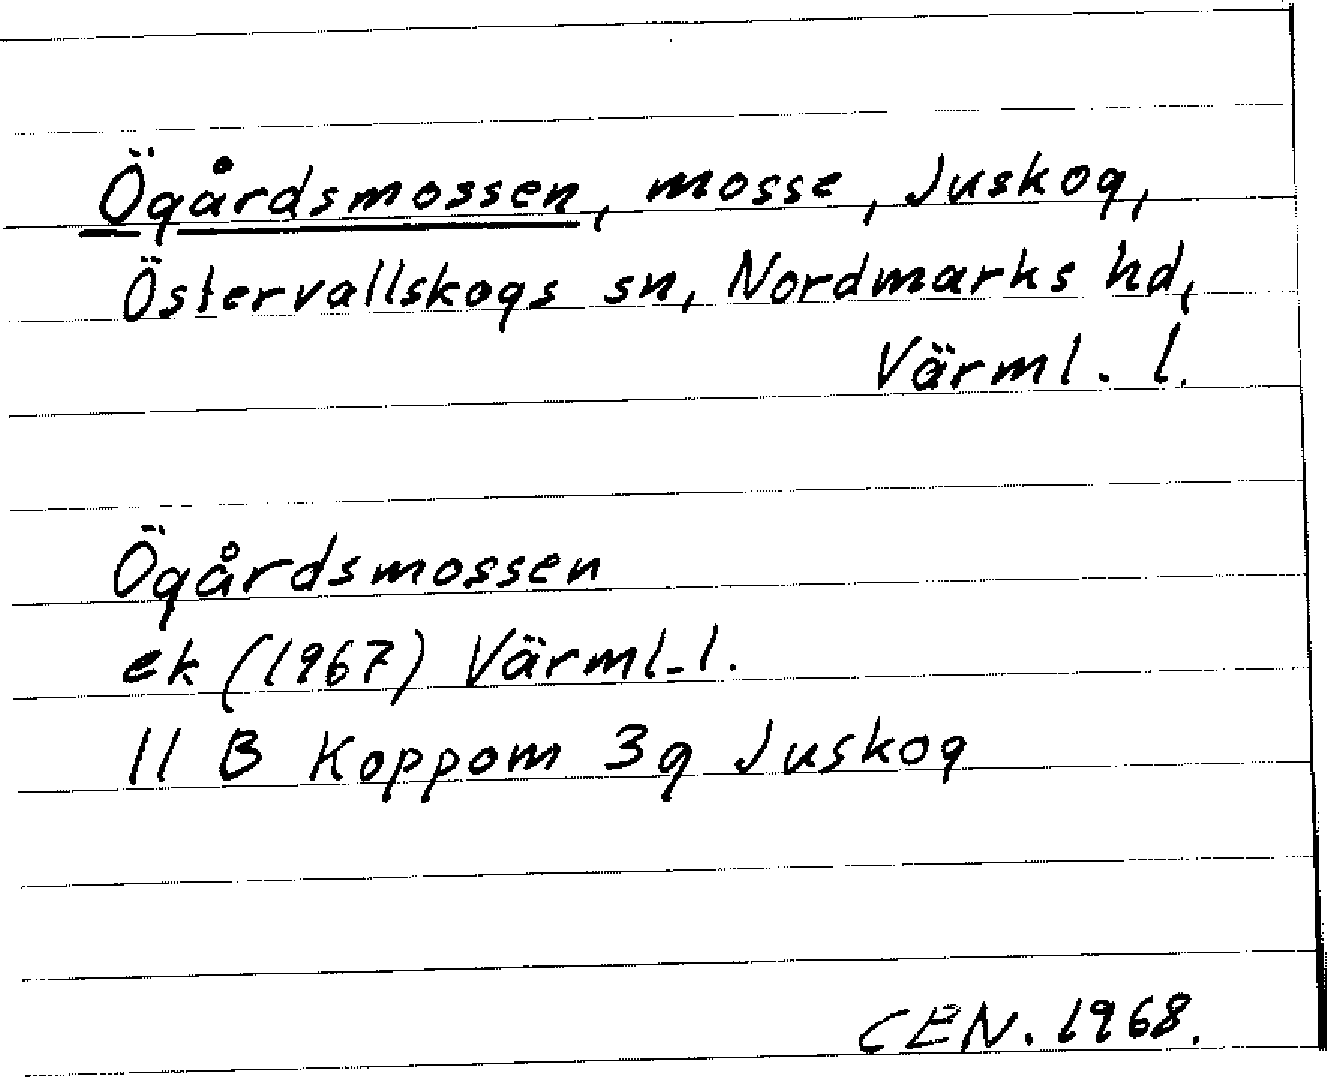 Ögårdsmossen, mosse, Juskog,
Östervallskogs sn, Nordmarks hd,
Värml. l.
Ögårdsmossen
ek (1967) Värml. l.
11 B Koppom 3g Juskog
CEN. 1968.